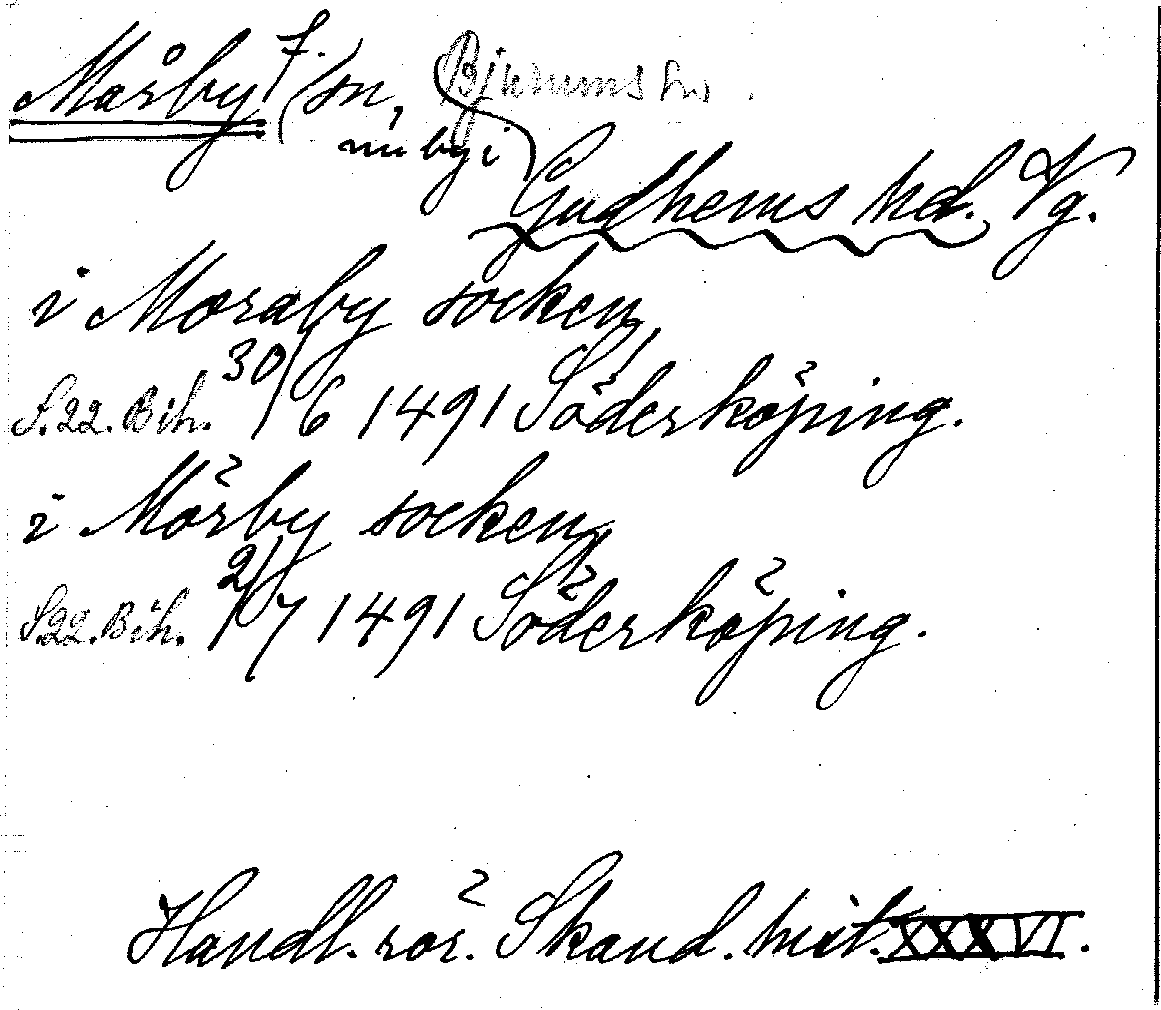 Mårby f. (sn, Bjurums sn.
nu by i
Gudhems hd. Vg.
i Moraby socken,
S. 22. Bih. 30/6 1491 Söderköping.
i Mörby socken,
S. 22. Bih. 2/7 1491 Söderköping.
Handl. rör. Skand. hist. XXXVI.